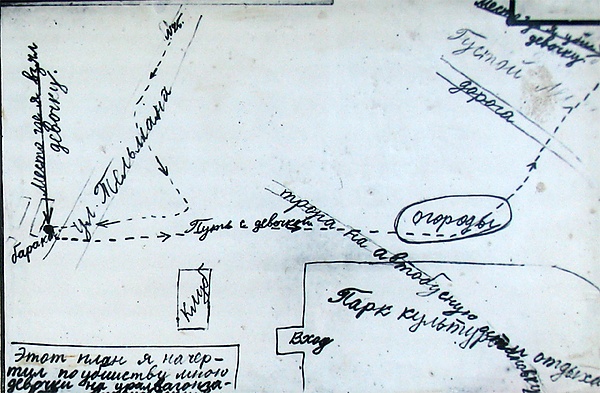 Место где я взял
девочку.
ул Тельмана
барак
Путь с девочкой
Клуб
Место где я убил
девочку
Пустой
дорога
огороды
тропа на автобусную
Парк культуры
отдыха
Вход
Этот план я начер-
тил по убийству мною
девочки на уралвагонза-